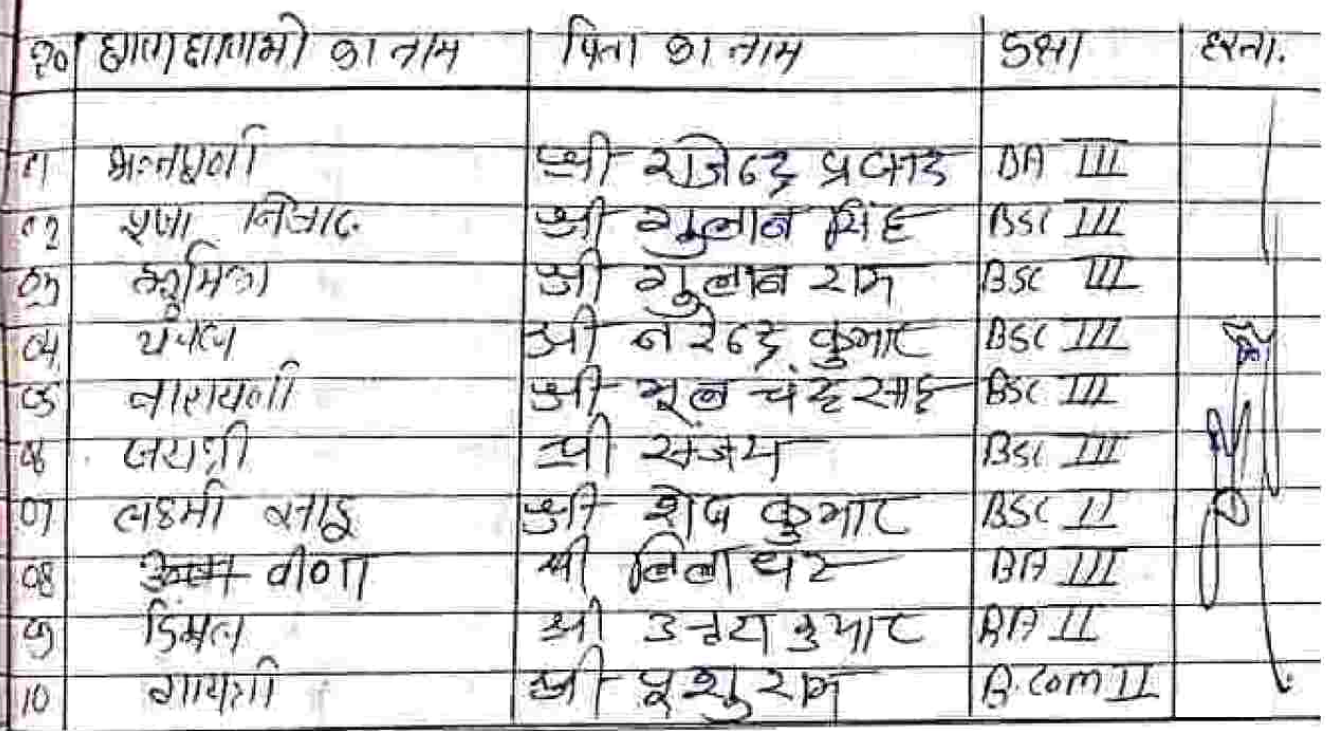 क्र० छात्र/छात्राओ का नाम पिता का नाम कक्षा हस्ता.
01 अन्नपूर्णा श्री राजेन्द्र प्रसाद BA III
02 निषाद श्री गुलाब सिंह BSC III
03 भूमिका श्री गुलाब राम BSC III
04 चंचल श्री नरेन्द्र कुमार BSC III
05 नारायणी श्री मूल चंद साहू BSC III
06 जयश्री श्री संजय BSC III
07 लक्ष्मी साहू श्री शेष कुमार BSC II
08 वीणा श्री लिला धर BA III
09 डिंपल श्री उदय कुमार BA II
10 गायत्री श्री राम B.Com II